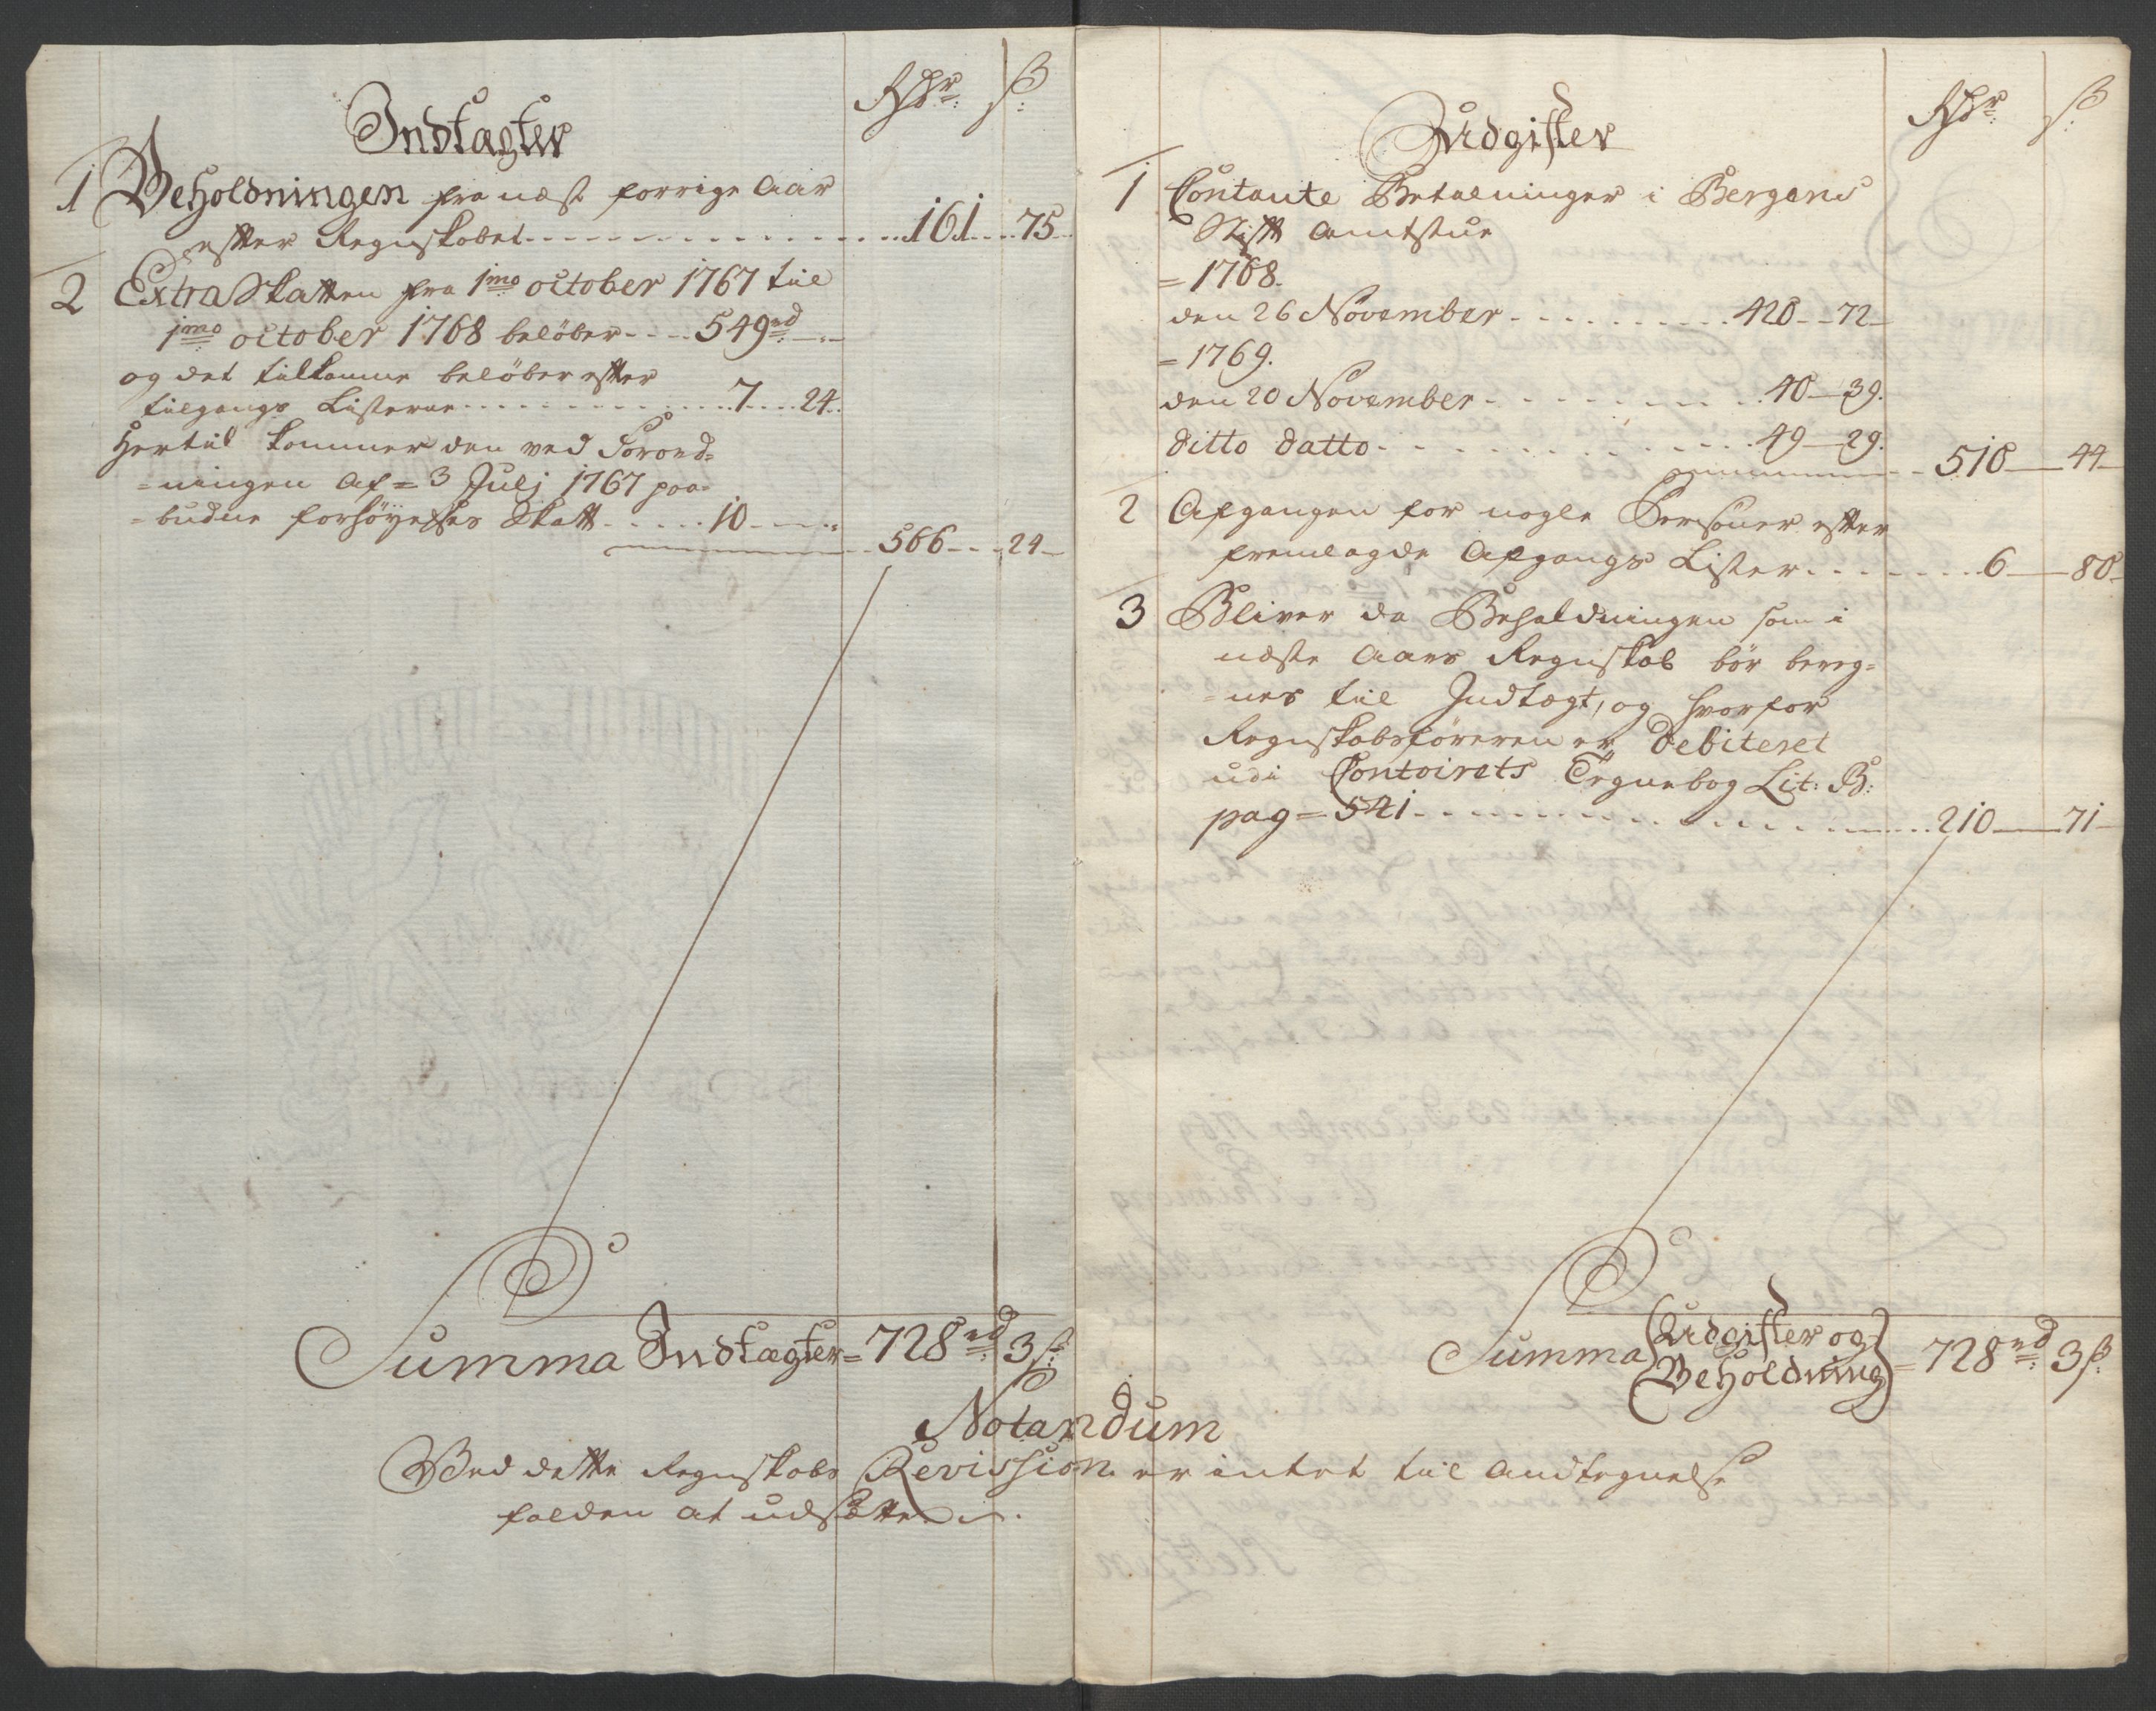 Rdr: ß:
Indtægter
1 Beholdningen fra næst forrige Aar
efter Regnskabet 161 75
2 Extra Skatten fra 1mo october 1767 til
1mo october 1768 beløber 549rd
og det tilkomne beløber efter
tilgangs Listerne 7 24
Hertil kommer den ved Forord=
=ningen af = 3 Julj 1767 paa=
=budne forhøyelses Skatt 10
566 24
Summa Indtægter = 728rd 3ß:
Rdr: ß:
Udgifter
1 Contante Betalninger i Bergens
Stift Amtstue
= 1768.
den 26 November 428 72
= 1769.
den 20 November 40 39.
ditto datto 49 29.
518 44
2 Afgangen for nogle Personer efter
fremlagde Afgangs Lister 6 80
3 Bliver da Beholdningen som i
næste Aars Regnskab bør bereg=
=nes til Indtægt, og hvorfor
Regnskabsføreren er debiteret
udi Contoirets Tegnebog Lit: B:
pag = 541 210 71
Summa {Udgifter og
Beholdning} = 728rd 3ß:
Notandum
Ved dette Regnskabs Revission er intet til Andtegnelse
falden at udsætte